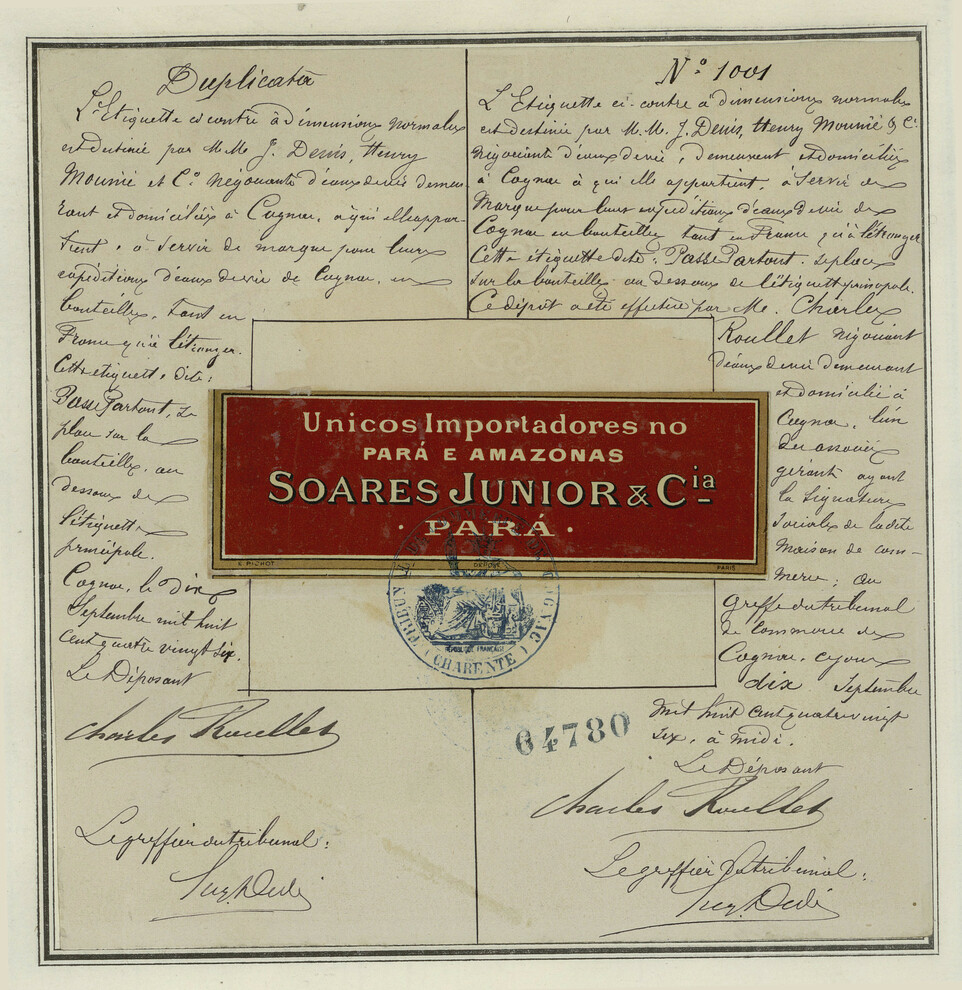 Duplicata
L'Etiquette ci contre à dimensions normales
est destinée par M.M. J. Denis, Henry
Mounié et Cº négociants d'eaux de vie demeu-
rant et domiciliés à Cognac, à qui elle appar-
tient, à servir de marque pour leurs
expéditions d'eaux de vie de Cognac, en
bouteilles, tant en
France qu'à l'étranger.
Cette étiquette, dite:
Passe Partout, se
place sur la
bouteille, au
dessous de
l'étiquette
principale.
Cognac, le dix
Septembre mil huit
cent quatre vingt six.
Le Déposant
Charles Roullet
Le greffier du tribunal:
Nº 1001
L'Etiquette ci-contre à dimensions normales
est destinée par M.M. J. Denis, Henry Mounié & Cº
négociants d'eaux de vie, demeurant et domiciliés
à Cognac à qui elle appartient, à servir de
Marque pour leurs expéditions d'eaux de vie de
Cognac en bouteilles tant en France qu'à l'étranger
Cette étiquette dite: Passe Partout, se place
sur la bouteille au dessous de l'étiquette principale.
Ce dépôt a été effectué par M. Charles
Roullet négociant
d'eaux de vie demeurant
et domicilié à
Cognac, l'un
des associés
gérant ayant
la signature
sociale de ladite
Maison de com-
merce; au
Greffe du tribunal
de Commerce de
Cognac, ce jour
dix Septembre
mil huit cent quatre vingt
six, à midi.
Le Déposant
Charles Roullet
Le greffier du tribunal:
Unicos Importadores no
PARÁ E AMAZONAS
SOARES JUNIOR & Cia
· PARÁ ·
E. PICHOT DÉPOSÉ PARIS
RÉPUBLIQUE FRANÇAISE
(CHARENTE)
64780